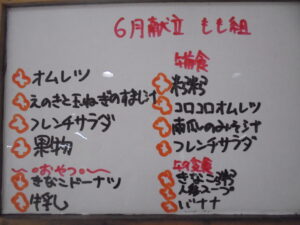 6月献立 もも組
オムレツ
えのきと玉ねぎのすまし汁
フレンチサラダ
果物
おやつ
きなこドーナツ
牛乳
午前食
粥
コロコロオムレツ
南瓜のみそ汁
フレンチサラダ
午後食
きなこ粥
人参スープ
バナナ